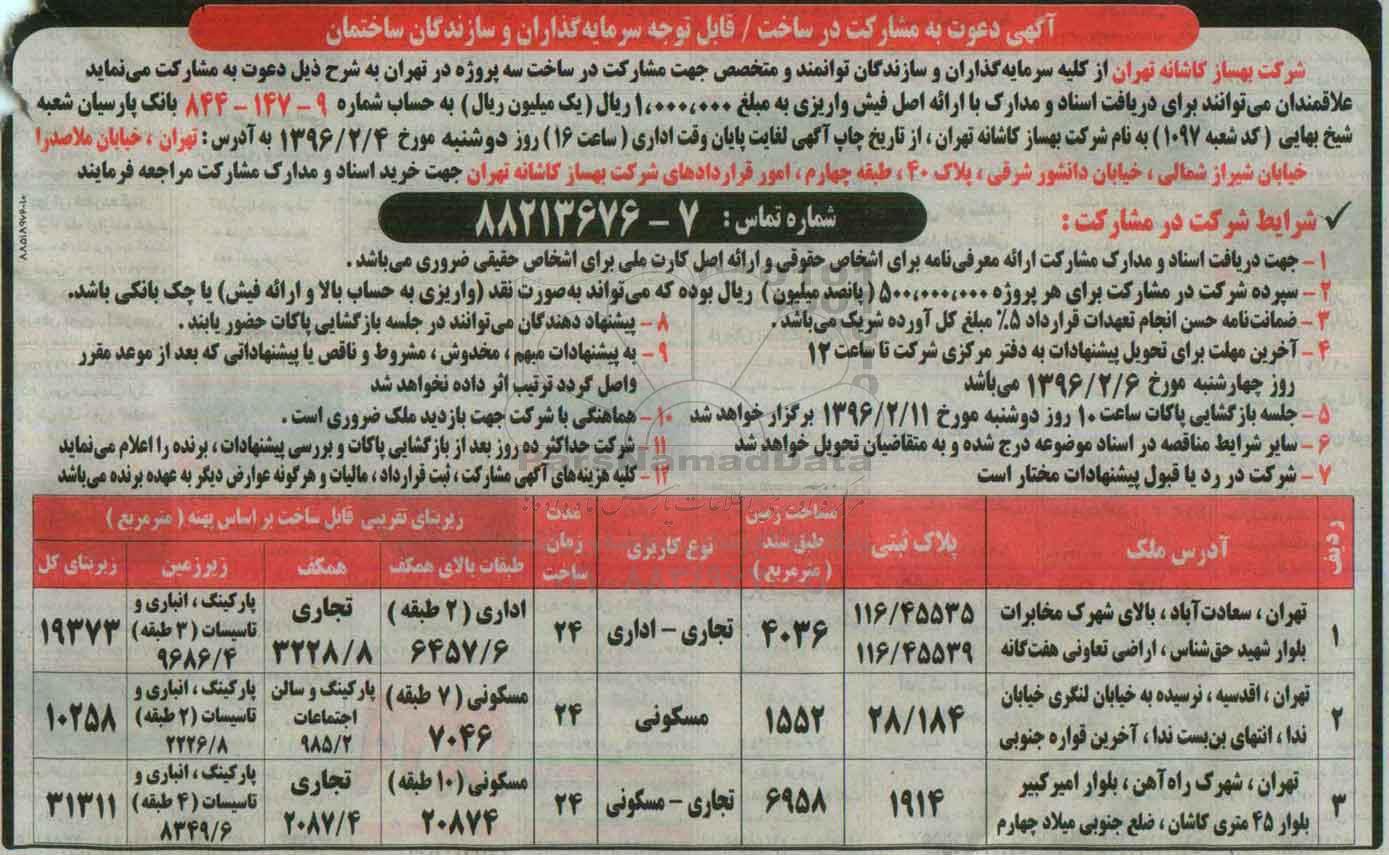 آگهی دعوت به مشارکت در ساخت / قابل توجه سرمایه‌گذاران و سازندگان ساختمان
شرکت بهساز کاشانه تهران از کلیه سرمایه‌گذاران و سازندگان توانمند و متخصص جهت مشارکت در ساخت سه پروژه در تهران به شرح ذیل دعوت به مشارکت می‌نماید
علاقمندان می‌توانند برای دریافت اسناد و مدارک با ارائه اصل فیش واریزی به مبلغ ۱,۰۰۰,۰۰۰ ریال (یک میلیون ریال) به حساب شماره ۹-۱۴۷-۸۴۴ بانک پارسیان شعبه
شیخ بهایی (کد شعبه ۱۰۹۷) به نام شرکت بهساز کاشانه تهران ، از تاریخ چاپ آگهی لغایت پایان وقت اداری (ساعت ۱۶) روز دوشنبه مورخ ۱۳۹۶/۲/۴ به آدرس : تهران ، خیابان ملاصدرا
خیابان شیراز شمالی ، خیابان دانشور شرقی ، پلاک ۴۰ ، طبقه چهارم ، امور قراردادهای شرکت بهساز کاشانه تهران جهت خرید اسناد و مدارک مشارکت مراجعه فرمایند
۸۸۵۱۸۹۷۶-۱۰
✓ شرایط شرکت در مشارکت :
شماره تماس : ۷ - ۸۸۲۱۳۶۷۶
۱- جهت دریافت اسناد و مدارک مشارکت ارائه معرفی‌نامه برای اشخاص حقوقی و ارائه اصل کارت ملی برای اشخاص حقیقی ضروری می‌باشد .
۲- سپرده شرکت در مشارکت برای هر پروژه ۵۰۰,۰۰۰,۰۰۰ (پانصد میلیون) ریال بوده که می‌تواند به‌صورت نقد (واریزی به حساب بالا و ارائه فیش) یا چک بانکی باشد.
۳- ضمانت‌نامه حسن انجام تعهدات قرارداد ۵٪ مبلغ کل آورده شریک می‌باشد .
۴- آخرین مهلت برای تحویل پیشنهادات به دفتر مرکزی شرکت تا ساعت ۱۲
روز چهارشنبه مورخ ۱۳۹۶/۲/۶ می‌باشد
۵- جلسه بازگشایی پاکات ساعت ۱۰ روز دوشنبه مورخ ۱۳۹۶/۲/۱۱ برگزار خواهد شد
۶- سایر شرایط مناقصه در اسناد موضوعه درج شده و به متقاضیان تحویل خواهد شد
۷- شرکت در رد یا قبول پیشنهادات مختار است
۸- پیشنهاد دهندگان می‌توانند در جلسه بازگشایی پاکات حضور یابند .
۹- به پیشنهادات مبهم ، مخدوش ، مشروط و ناقص یا پیشنهاداتی که بعد از موعد مقرر
واصل گردد ترتیب اثر داده نخواهد شد
۱۰- هماهنگی با شرکت جهت بازدید ملک ضروری است .
۱۱- شرکت حداکثر ده روز بعد از بازگشایی پاکات و بررسی پیشنهادات ، برنده را اعلام می‌نماید
۱۲- کلیه هزینه‌های آگهی مشارکت ، ثبت قرارداد ، مالیات و هرگونه عوارض دیگر به عهده برنده می‌باشد
ParsNamadData
ردیف
آدرس ملک
پلاک ثبتی
مساحت زمین
طبق سند
(مترمربع)
نوع کاربری
مدت
زمان
ساخت
زیربنای تقریبی قابل ساخت بر اساس پهنه (مترمربع)
طبقات بالای همکف
همکف
زیرزمین
زیربنای کل
۱
تهران ، سعادت‌آباد ، بالای شهرک مخابرات
بلوار شهید حق‌شناس ، اراضی تعاونی هفت‌گانه
۱۱۶/۴۵۵۳۵
۱۱۶/۴۵۵۳۹
۴۰۳۶
تجاری - اداری
۲۴
اداری (۲ طبقه)
۶۴۵۷/۶
تجاری
۳۲۲۸/۸
پارکینگ ، انباری و
تاسیسات (۳ طبقه)
۹۶۸۶/۴
۱۹۳۷۳
۲
تهران ، اقدسیه ، نرسیده به خیابان لنگری خیابان
ندا ، انتهای بن‌بست ندا ، آخرین قواره جنوبی
۲۸/۱۸۴
۱۵۵۲
مسکونی
۲۴
مسکونی (۷ طبقه)
۷۰۴۶
پارکینگ و سالن
اجتماعات
۹۸۵/۲
پارکینگ ، انباری و
تاسیسات (۲ طبقه)
۲۲۲۶/۸
۱۰۲۵۸
۳
تهران ، شهرک راه‌آهن ، بلوار امیرکبیر
بلوار ۴۵ متری کاشان ، ضلع جنوبی میلاد چهارم
۱۹۱۴
۶۹۵۸
تجاری - مسکونی
۲۴
مسکونی (۱۰ طبقه)
۲۰۸۷۴
تجاری
۲۰۸۷/۴
پارکینگ ، انباری و
تاسیسات (۴ طبقه)
۸۳۴۹/۶
۳۱۳۱۱